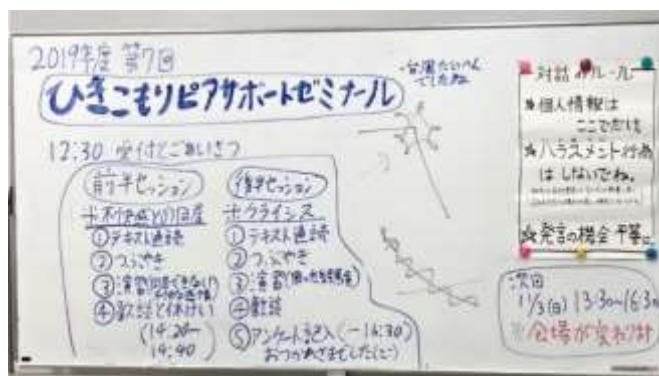 2019年度 第7回
ひきこもりピアサポートゼミナール
・台風たいへん
でしたね
12:30 受付とごあいさつ
前半セッション
①テキスト通読
②つぶやき
③演習
④歓談と休けい
(14:20ー
14:40)
後半セッション
＋クライシス
①テキスト通読
②つぶやき
③演習
④歓談
⑤アンケート記入(ー16:30)
おつかれさまでした(ニ)
対話のルール
☆個人情報は
ここでだけ
☆ハラスメント行為
はしないでね。
☆発言の機会 平等に
次回
11/3(日) 13:30〜16:30
※会場が変わります